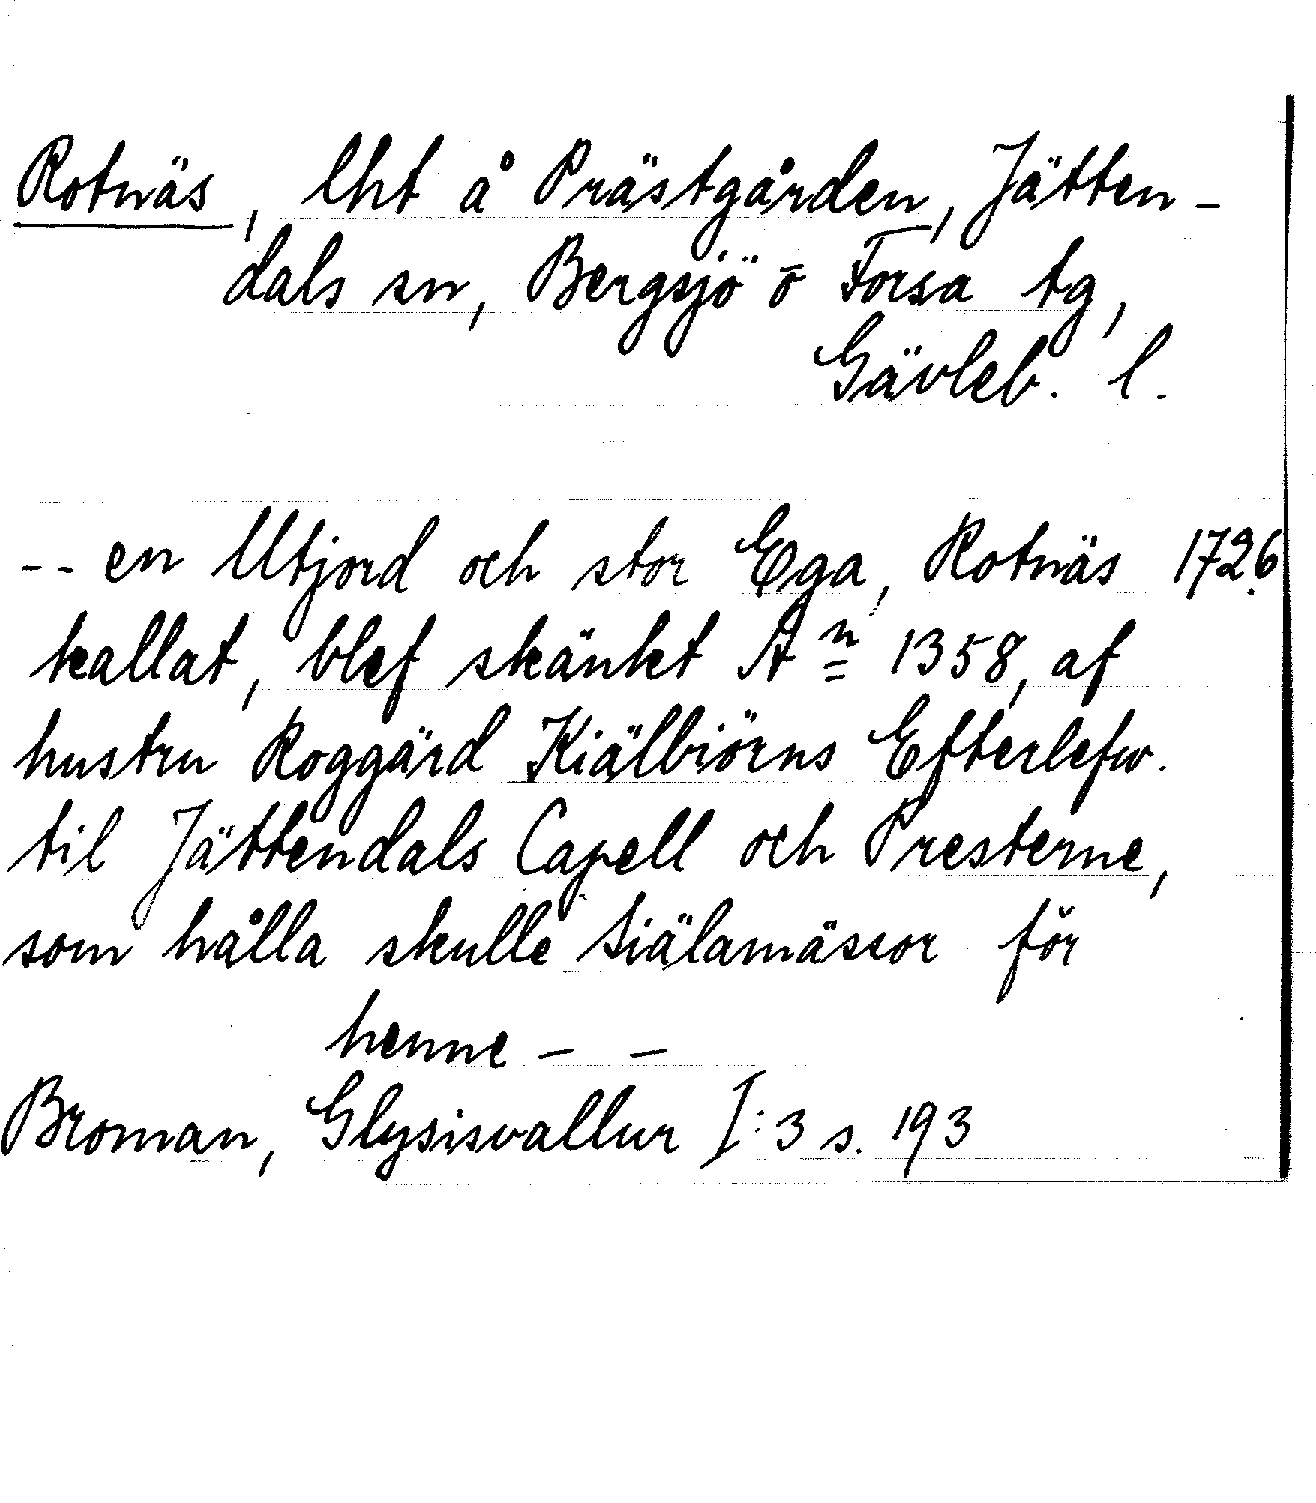 Rotnäs, lht å Prästgården, Jätten-
dals sn, Bergsjö o Forsa tg,
Gävleb. l.
-- en Utjord och stor Ega, Rotnäs 1726.
kallat, blef skänkt Aⁿ 1358, af
hustru Roggärd Kiälbiörns Efterlefw.
til Jättendals Capell och Presterne,
som hålla skulle siälamässor för
henne - -
Broman, Glysisvallur I:3 s. 193